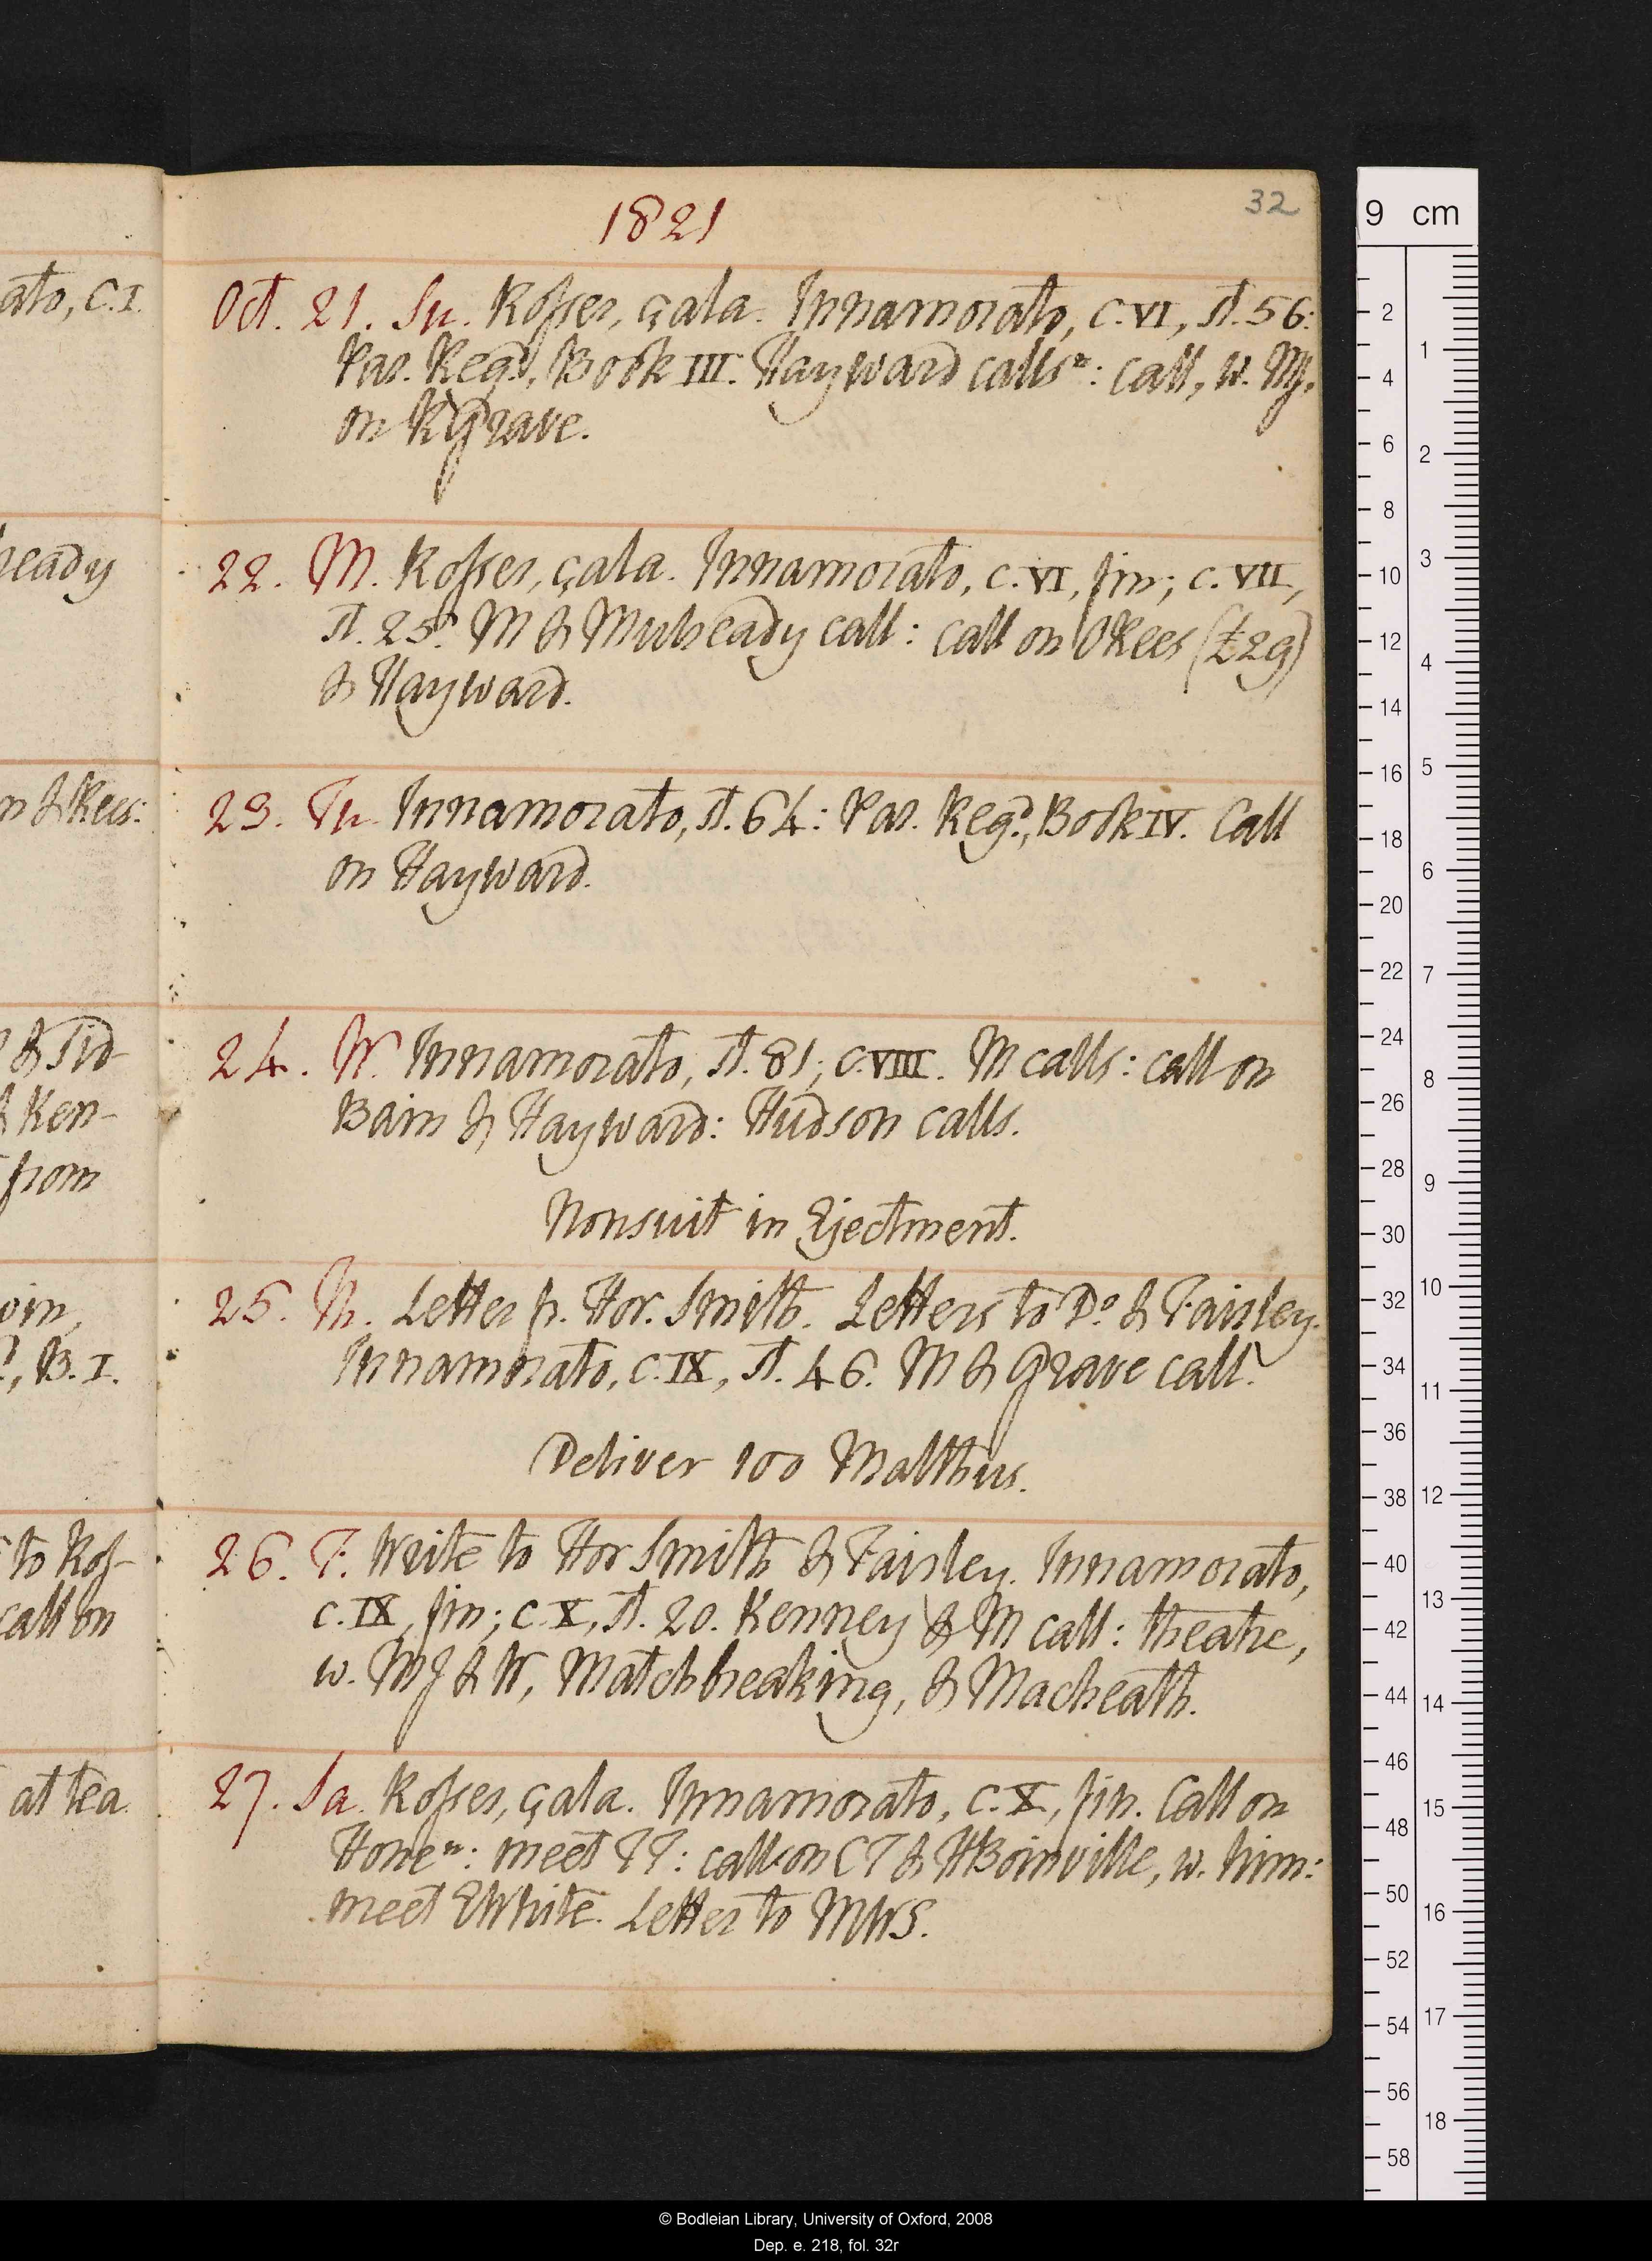 32
1821
ato, C.I.
Oct. 21. Su. Rosser, çala. Innamorato, C. VI, st. 56:
Par. Regd, Book III. Hayward calls n: call, w. MJ,
on RGrave.
heady
22. M. Rosser, çala. Innamorato, C. VI, fin; C. VII,
st. 25. M & Mulready call: call on ORees (£29)
& Hayward.
n & Rees:
23. Tu. Innamorato, st. 64: Par. Regd, Book IV. Call
on Hayward.
& Sid-
& Ken-
from
24. W. Innamorato, st. 81; C. VIII. M calls: call on
Bain & Hayward: Hudson calls.
Nonsuit in Ejectment.
win,
, B. I.
25. Th. Letter fr. Hor. Smith. Letters to Do. & Fairley.
Innamorato, C. IX, st. 46. M & Grave call.
Deliver 100 Malthus.
to Ros-
call on
26. F. Write to Hor Smith & Fairley. Innamorato,
C. IX, fin; C. X, st. 20. Kenney & M call: theatre,
w. MJ & W, Matchbreaking, & Macheath.
at tea
27. Sa. Rosser, çala. Innamorato, C. X, fin. Call on
Hone n: meet TT: call on CT & HBoinville, w. him:
meet EWhite. Letter to MWS.
9 cm
2
4
6
8
10
12
14
16
18
20
22
24
26
28
30
32
34
36
38
40
42
44
46
48
50
52
54
56
58
1
2
3
4
5
6
7
8
9
10
11
12
13
14
15
16
17
18
© Bodleian Library, University of Oxford, 2008
Dep. e. 218, fol. 32r